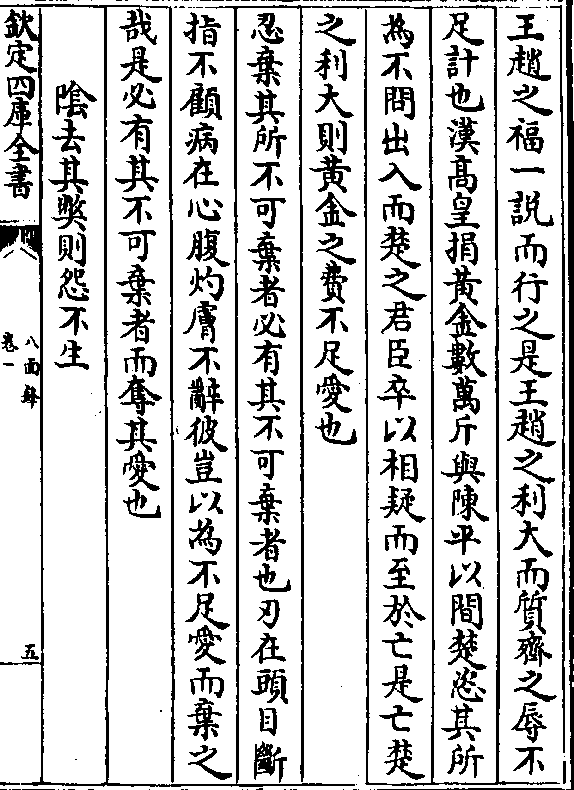 王趙之福一説而行之是王趙之利大而質齊之辱不
足計也漢髙皇捐黄金數萬斤與陳平以間楚恣其所
為不問出入而楚之君臣卒以相疑而至於亡是亡楚
之利大則黄金之費不足愛也
忍棄其所不可棄者必有其不可棄者也刃在頭目斷
指不顧病在心腹灼膚不辭彼豈以為不足愛而棄之
哉是必有其不可棄者而奪其愛也
陰去其弊則怨不生
欽定四庫全書
八面鋒
卷一
五